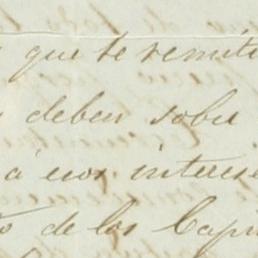 que te remite
deban sobre
á esos interese
de los Capi